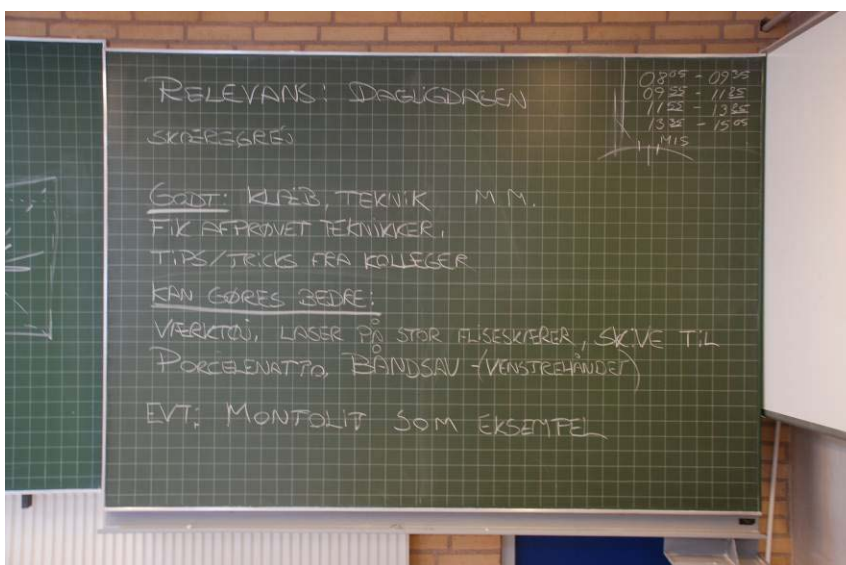 RELEVANS: DAGLIGDAGEN
SKÆREGREJ
GODT: KLÆB, TEKNIK M.M.
FIK AFPRØVET TEKNIKKER.
TIPS/TRICKS FRA KOLLEGER
KAN GØRES BEDRE:
VÆRKTØJ, LASER PÅ STOR FLISESKÆRER, SKIVE TIL
BÅNDSAV - (VENSTREHÅNDET)
EVT: MONTOLIT SOM EKSEMPEL
08 05 - 09 35
09 55 - 11 25
11 55 - 13 25
13 35 - 15 05